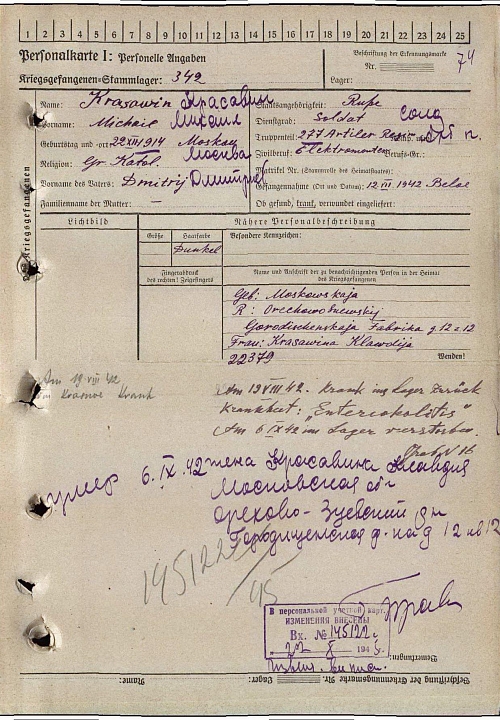 1 2 3 4 5 6 7 8 9 10 11 12 13 14 15 16 17 18 19 20 21 22 23 24 25
Personalkarte I: Personelle Angaben
Kriegsgefangenen-Stammlager: 342
Beschriftung der Erkennungsmarke
Nr. 74
Lager:
Des Kriegsgefangenen
Name: Krasawin Красавин
Vorname: Michail Михаил
Geburtstag und -ort 22 VIII 1914 Moskau Москва
Religion: Gr. Katol.
Vorname des Vaters: Dmitrij Дмитрий
Familienname der Mutter: –
Staatsangehörigkeit: Ruße
Dienstgrad: Soldat солд
Truppenteil: 277 Artiler Regim арт п.
Zivilberuf: Elektromonteur Berufs-Gr.:
Matrikel Nr. (Stammrolle des Heimatstaates):
Gefangennahme (Ort und Datum): 12 VII 1942 Beloe
Ob gesund, krank, verwundet eingeliefert:
Lichtbild
Nähere Personalbeschreibung
Größe Haarfarbe Besondere Kennzeichen:
Dunkel
Fingerabdruck
des rechten! Zeigefingers
Name und Anschrift der zu benachrichtigenden Person in der Heimat
des Kriegsgefangenen
Geb: Moskowskaja
R: Orechowo
Gorodischenskaja Fabrika g. 12 k 12
Frau: Krasawina Klawdija
22379
Wenden!
Am 19 VIII 42
krank
Am 19 VIII 42. krank ins Lager zurück
Krankheit: „Enterokolitis"
Am 6 IX 42 im Lager verstorben.
умер 6. IX. 42 жена Красавина Клавдия
Московская обл
Орехово-Зуевский рн
Городищенская ф-ка д 12 кв 12
145122
45
В персональной учетной карт.
ИЗМЕНЕНИЯ ВНЕСЕНЫ
Вх. № 145122 с
22 X 194
Bemerkungen:
Beschriftung der Erkennungsmarke Nr. Lager: Name: